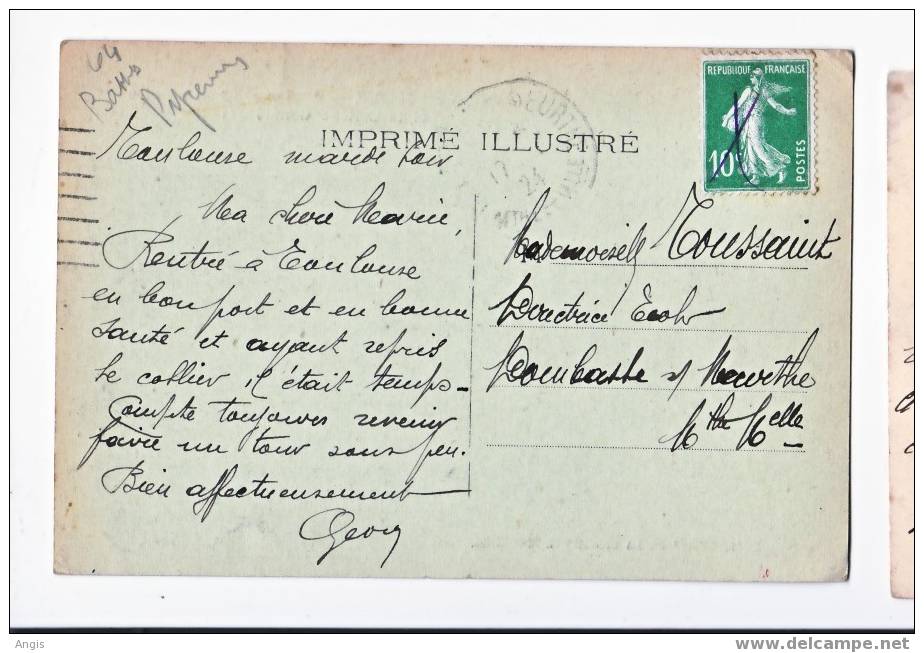 64
Basses
Pyrénées
IMPRIMÉ ILLUSTRÉ
REPUBLIQUE FRANÇAISE
10c
POSTES
MEURT
24
Toulouse mardi soir
Ma chère Marie,
Rentré à Toulouse
en bon port et en bonne
santé et ayant repris
le collier, il était temps -
Compte toujours revenir
faire un tour sous peu.
Bien affectueusement
Geory
Mademoiselle Toussaint
Directrice École
Dombasle s/ Meurthe
Mthe Melle
Angis
www.delcampe.net